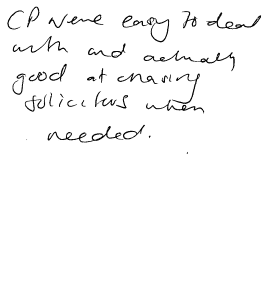 CP were easy to deal
with and actually
good at chasing
solicitors when
needed.